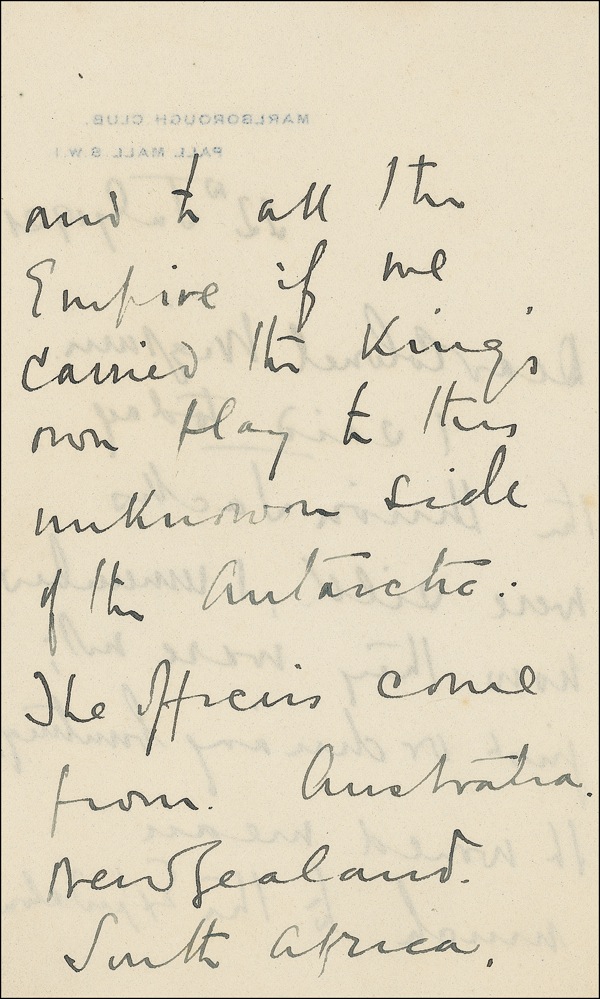 MARLBOROUGH CLUB.
PALL MALL S.W.1
and to all the
Empire if we
carried the King's
own flag to this
unknown side
of the Antarctic.
The officers come
from. Australia.
New Zealand.
South Africa.